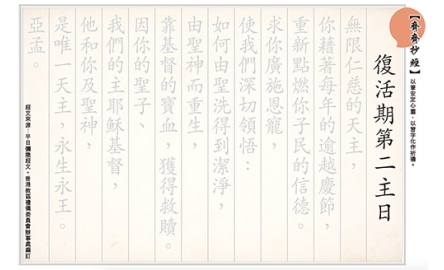 【齊齊抄經】
以筆安定心靈，以習字化作祈禱。
復活期第二主日
無限仁慈的天主，
你藉著每年的逾越慶節，
重新點燃你子民的信德。
求你廣施恩寵，
使我們深切領悟：
如何由聖洗得到潔淨，
由聖神而重生，
靠基督的寶血，獲得救贖。
因你的聖子、
我們的主耶穌基督，
他和你及聖神，
是唯一天主，永生永王。
亞孟。
經文來源：平日彌撒經文。香港教區禮儀委員會辦事處編訂